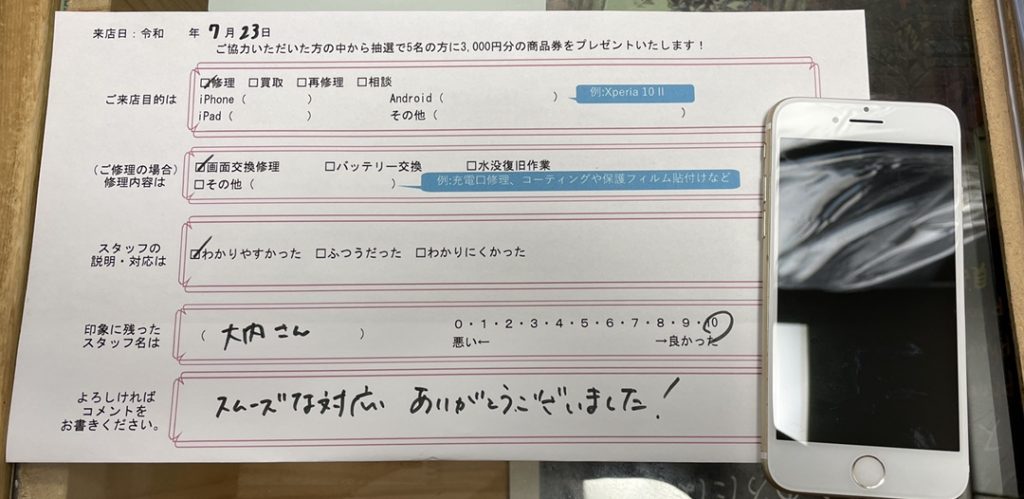 来店日：令和　　年 7月23日
ご協力いただいた方の中から抽選で5名の方に3,000円分の商品券をプレゼントいたします！
ご来店目的は
☑修理　□買取　□再修理　□相談
iPhone（　　　　　）　　Android（　　　　　　　　）
例:Xperia 10 II
iPad（　　　　　）　　その他（　　　　　　　　　　　　　　　）
（ご修理の場合）
修理内容は
☑画面交換修理　□バッテリー交換　□水没復旧作業
□その他（　　　　　　　　）
例:充電口修理、コーティングや保護フィルム貼付けなど
スタッフの
説明・対応は
☑わかりやすかった　□ふつうだった　□わかりにくかった
印象に残った
スタッフ名は
（　大内さん　）
0・1・2・3・4・5・6・7・8・9・10
悪い←　　　　　　→良かった
よろしければ
コメントを
お書きください。
スムーズな対応 ありがとうございました！